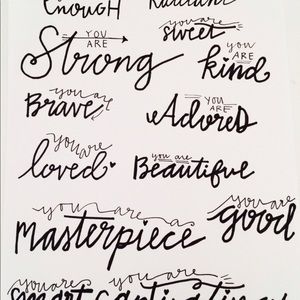 Enough
Radiant
you are
sweet
YOU
ARE
Strong
YOU
ARE
kind
you are
Brave
YOU
ARE
Adored
you are
loved
you are
Beautiful
you are a
masterpiece
you are
good
you are
smart
you are
captivating